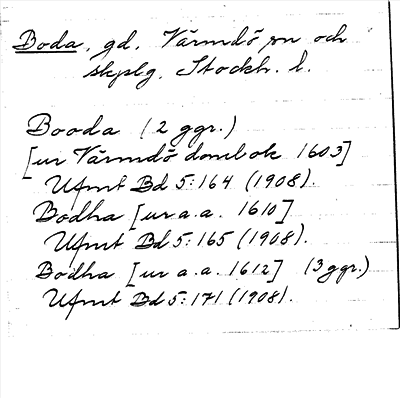 Boda, gd, Värmdö sn och
skplg, Stockh. l.
Booda (2 ggr.)
[ur Värmdö dombok 1603]
Ufmt Bd 5:164 (1908).
Bodha [ur a.a. 1610]
Ufmt Bd 5:165 (1908).
Bodha [ur a.a. 1612] (3 ggr.)
Ufmt Bd 5:171 (1908).